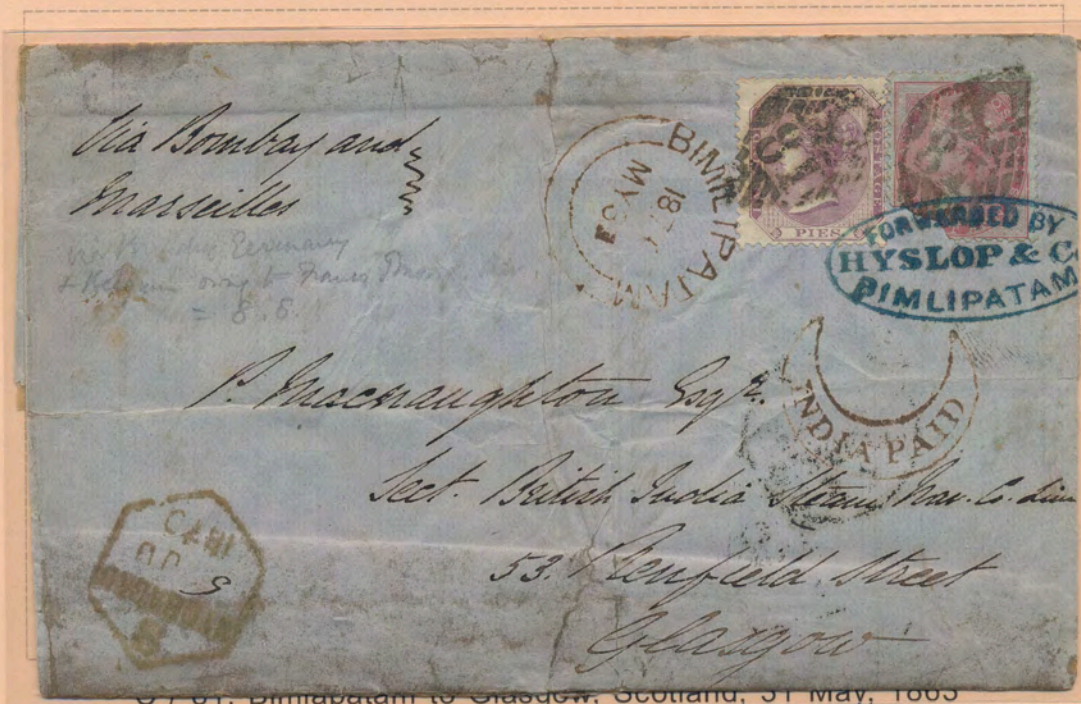 Via Bombay and
Marseilles
BIMLIPATAM
18
MY 31
PIES
POSTAGE
FORWARDED BY
HYSLOP & Co
BIMLIPATAM
= 8.8.
P. Macnaughton Esqr.
INDIA PAID
Sect. British India Steam Nav. Co. Lim
53. Renfield Street
Glasgow
Bimlapatam to Glasgow, Scotland, 31 May, 1863